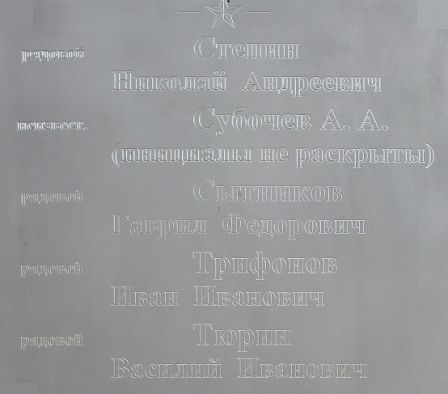 рядовой Степин
Николай Андреевич
неизвест. Субочев А. А.
(инициалы не раскрыты)
рядовой Сытников
Гаврил Федорович
рядовой Трифонов
Иван Иванович
рядовой Тюрин
Василий Иванович